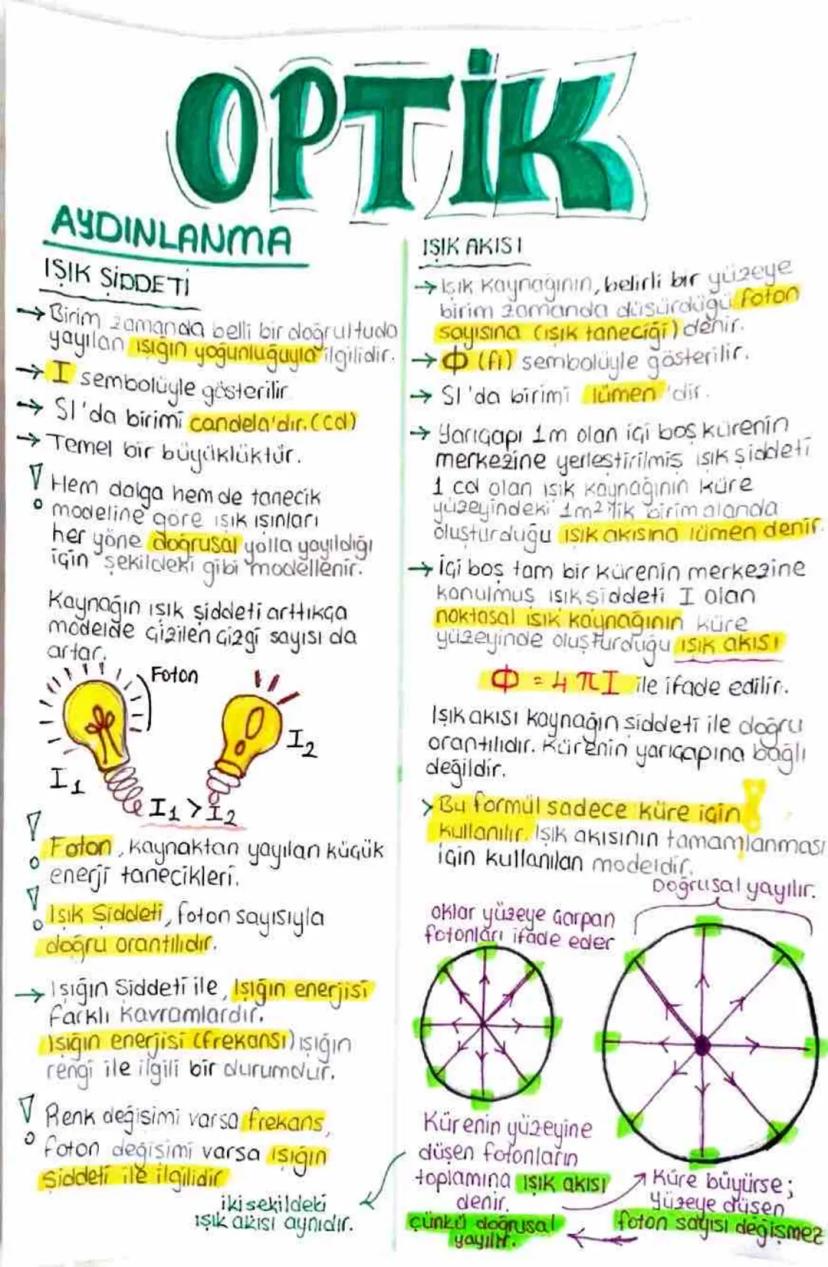 OPTİK
AYDINLANMA
IŞIK ŞİDDETİ
→ Birim zamanda belli bir doğrultuda
yayılan ışığın yoğunluğuyla ilgilidir.
→ I sembolüyle gösterilir
→ SI'da birimi candela'dır. (cd)
→ Temel bir büyüklüktür.
! Hem dalga hem de tanecik
modeline göre ışık ışınları
her yöne doğrusal yolla yayıldığı
için şekildeki gibi modellenir.
Kaynağın ışık şiddeti arttıkça
modelde çizilen çizgi sayısı da
artar.
Foton
I₁
I₂
I₁ > I₂
! Foton, kaynaktan yayılan küçük
enerji tanecikleri.
! Işık Şiddeti, foton sayısıyla
doğru orantılıdır.
→ Işığın Şiddeti ile, ışığın enerjisi
farklı kavramlardır.
Işığın enerjisi (frekansı) ışığın
rengi ile ilgili bir durumdur.
! Renk değişimi varsa frekans,
foton değişimi varsa ışığın
şiddeti ile ilgilidir
IŞIK AKISI
→ Işık Kaynağının, belirli bir yüzeye
birim zamanda düşürdüğü foton
sayısına (ışık taneciği) denir.
→ Φ (fi) sembolüyle gösterilir.
→ SI'da birimi lümen'dir.
→ Yarıçapı 1m olan içi boş kürenin
merkezine yerleştirilmiş ışık şiddeti
1 cd olan ışık kaynağının küre
yüzeyindeki 1m²'lik birim alanda
oluşturduğu ışık akısına lümen denir.
→ İçi boş tam bir kürenin merkezine
konulmuş ışık şiddeti I olan
noktasal ışık kaynağının küre
yüzeyinde oluşturduğu ışık akısı
Φ = 4πI ile ifade edilir.
Işık akısı kaynağın şiddeti ile doğru
orantılıdır. Kürenin yarıçapına bağlı
değildir.
> Bu formül sadece küre için !
kullanılır. Işık akısının tamamlanması
için kullanılan modeldir.
Doğrusal yayılır.
oklar yüzeye çarpan
fotonları ifade eder
Kürenin yüzeyine
düşen fotonların
toplamına ışık akısı
denir.
çünkü doğrusal
yayılır.
Küre büyürse;
yüzeye düşen
foton sayısı değişmez
iki şekildeki
ışık akısı aynıdır.